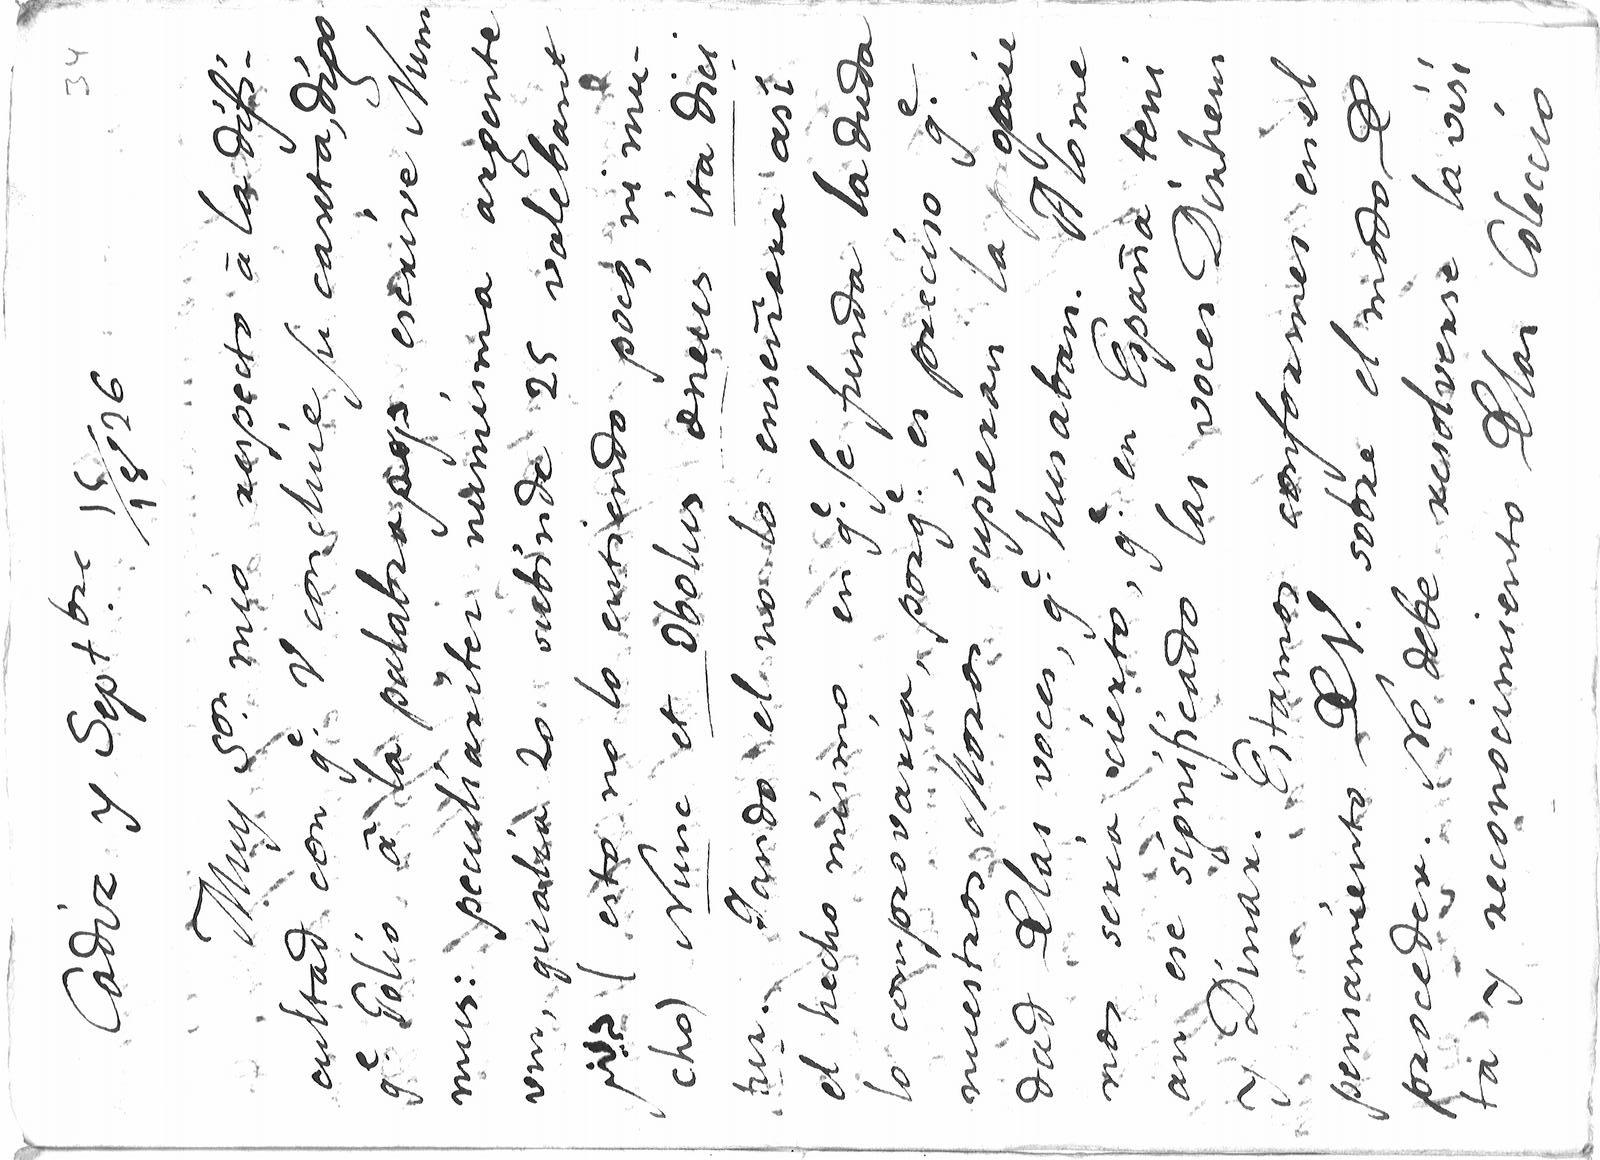 34
Cadiz y Septbre 15/1826
Muy Sor. mio respecto â la difi-
cultad con qe. V concluie su carta, digo
qe Golio â la palabra escrive Num
mus: peculiariter numisma argente
um, qualia 20 subinde 25 valebant
( esto no lo entiendo poco, ni mu-
cho) Nunc et Obolus æneus ita dici
tur. Dando el no lo enseñara asi
el hecho mismo en qe. se funda la duda
lo comprovaria, porqe. es preciso qe.
nuestros Moros supieran la
dad Dlas voces, qe. husaban. A lo me
nos seria cierto, qe en España teni
an ese significado las voces Dinhem
y Dinar. Estamos conformes en el
pensamiento D N. sobre el modo D
proceder. No debe resolverse la visi
ta y reconocimiento Dlas Coleccio